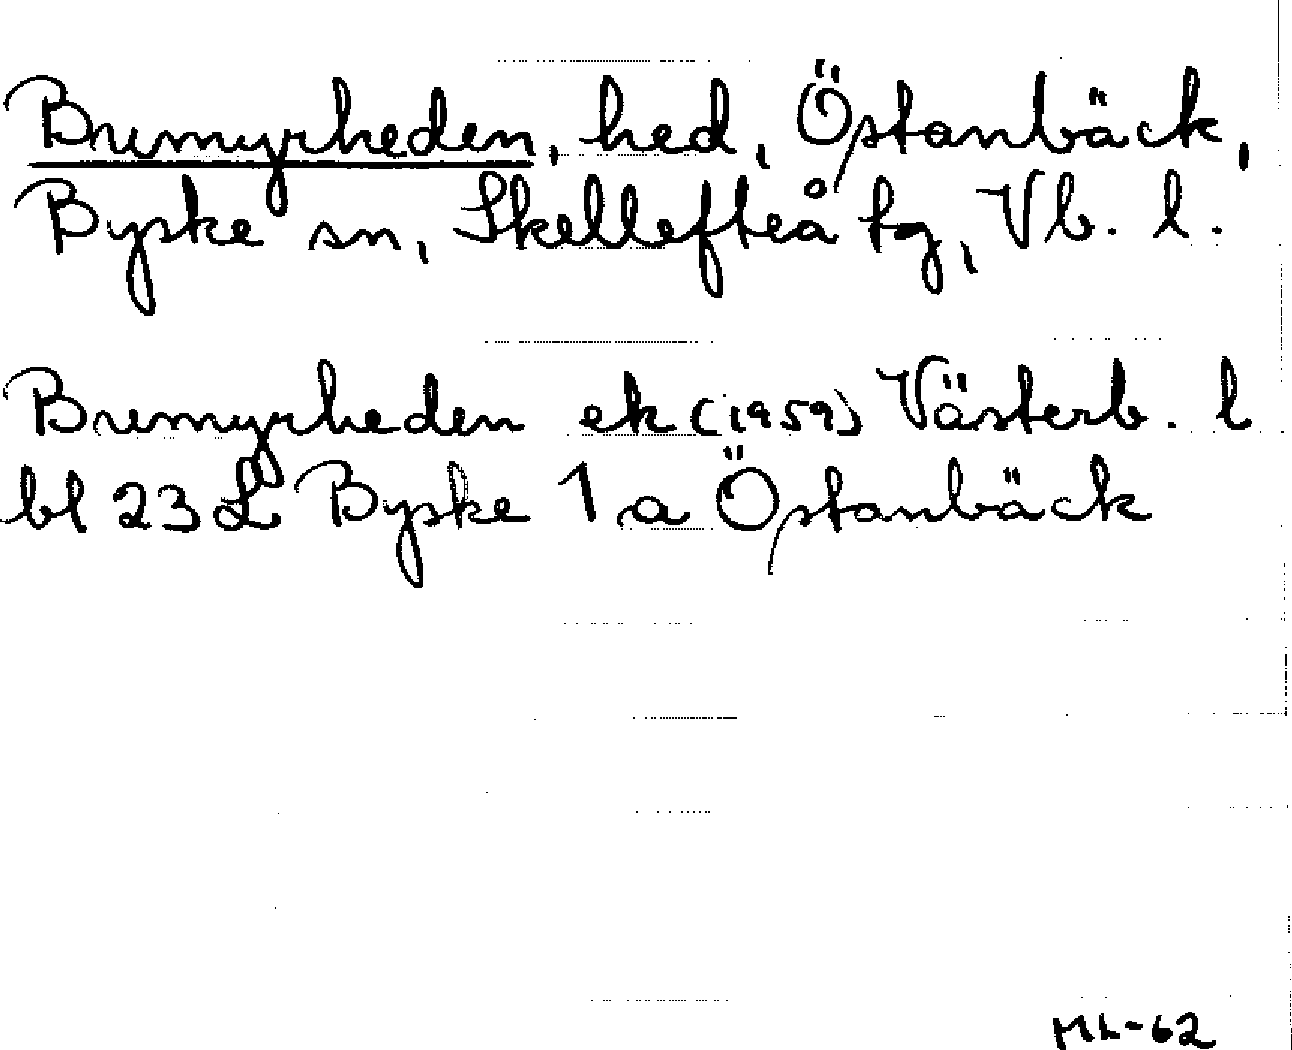 Bremyrheden, hed, Östanbäck,
Byske sn, Skellefteå tg, Vb. l.
Bremyrheden ek (1959) Västerb. l
bl 23 L Byske 1 a Östanbäck
ML-62